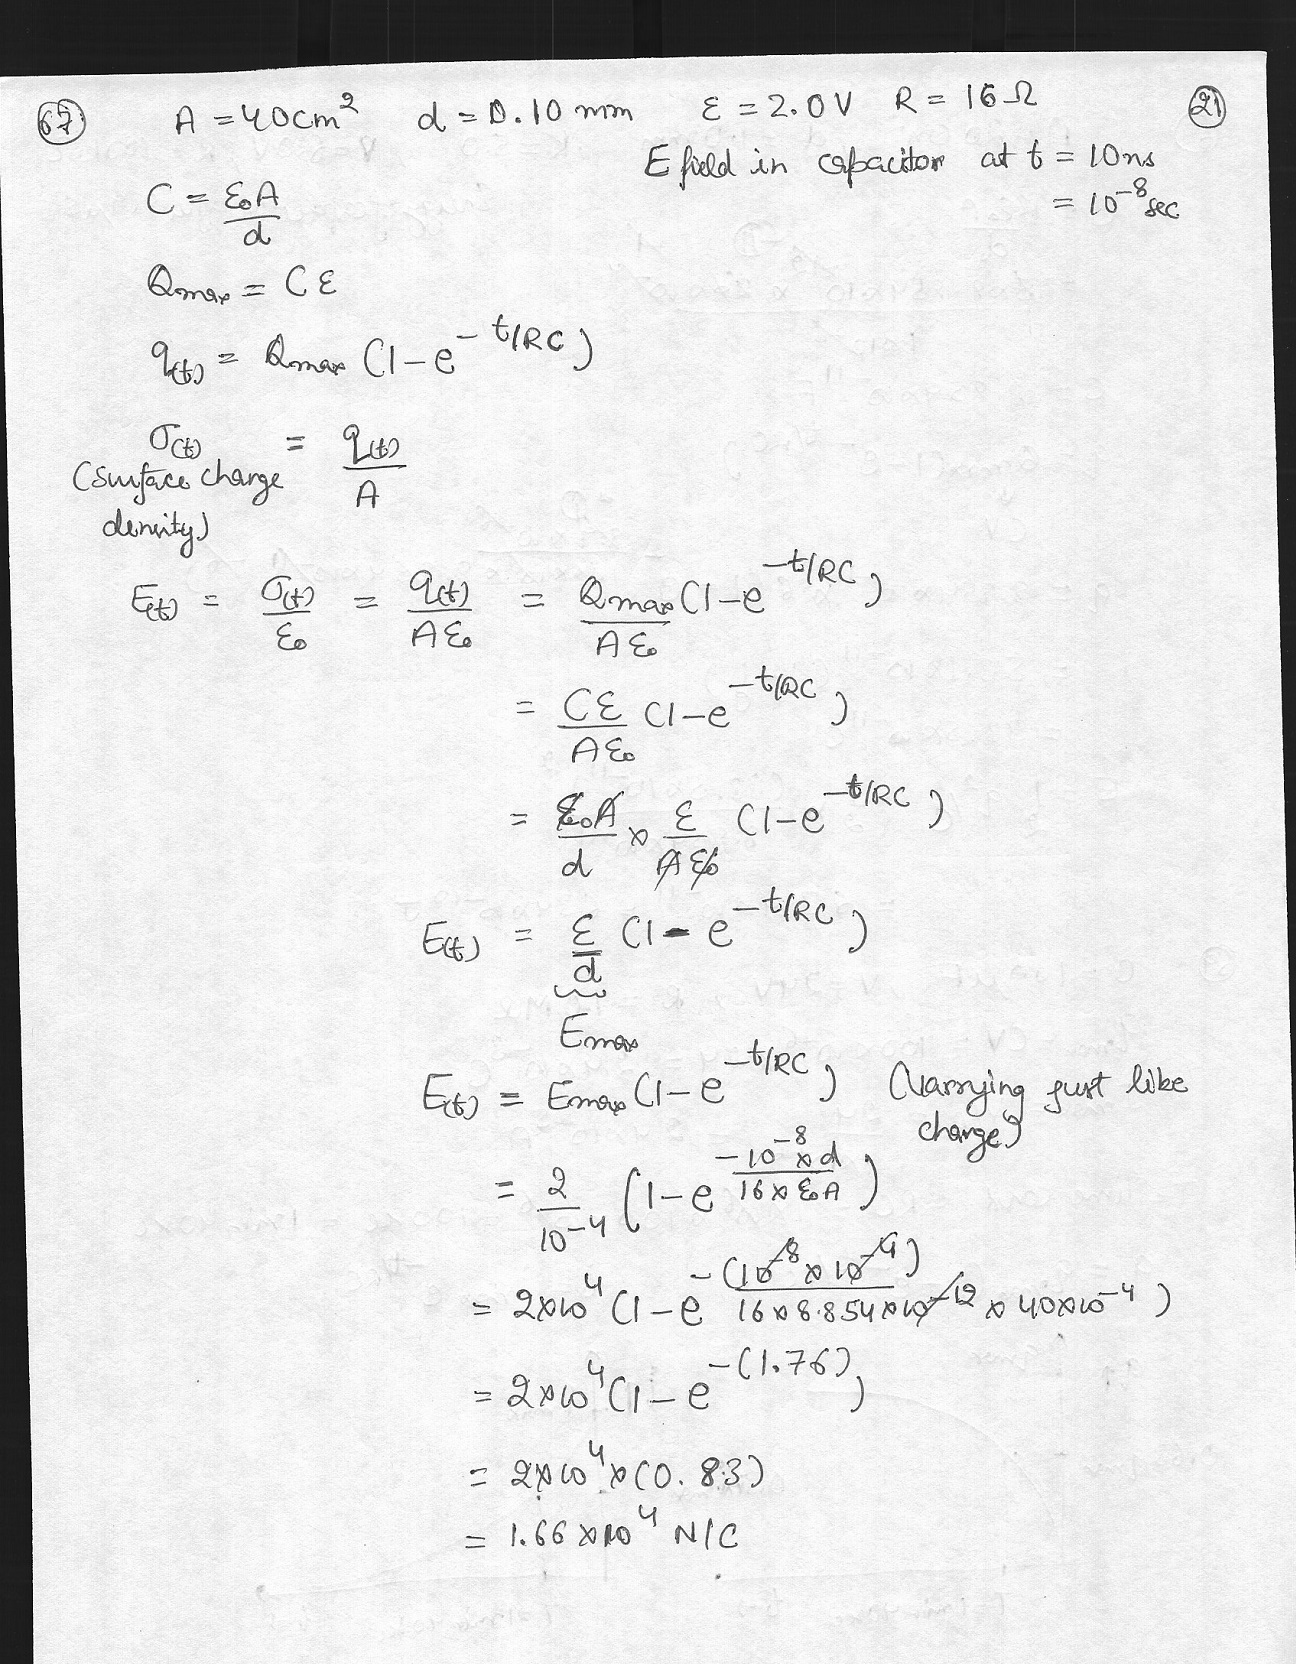 67 A = 40cm² d = 0.10 mm ε = 2.0V R = 16Ω 21
E field in capacitor at t = 10ns
= 10⁻⁸ sec
C = ε₀A/d
Qmax = Cε
q(t) = Qmax (1-e^-t/RC)
σ(t) = q(t)/A
(surface charge
density)
E(t) = σ(t)/ε₀ = q(t)/Aε₀ = Qmax/Aε₀ (1-e^-t/RC)
= Cε/Aε₀ (1-e^-t/RC)
= ε₀A/d × ε/Aε₀ (1-e^-t/RC)
E(t) = ε/d (1-e^-t/RC)
Emax
E(t) = Emax (1-e^-t/RC) (Varrying just like
charge)
= 2/10⁻⁴ (1-e^-10⁻⁸×d/16×ε₀A)
= 2×10⁴ (1-e^-(10⁻⁸×10⁻⁴)/16×8.854×10⁻¹²×40×10⁻⁴)
= 2×10⁴ (1-e^-(1.76))
= 2×10⁴×(0.83)
= 1.66×10⁴ N/C